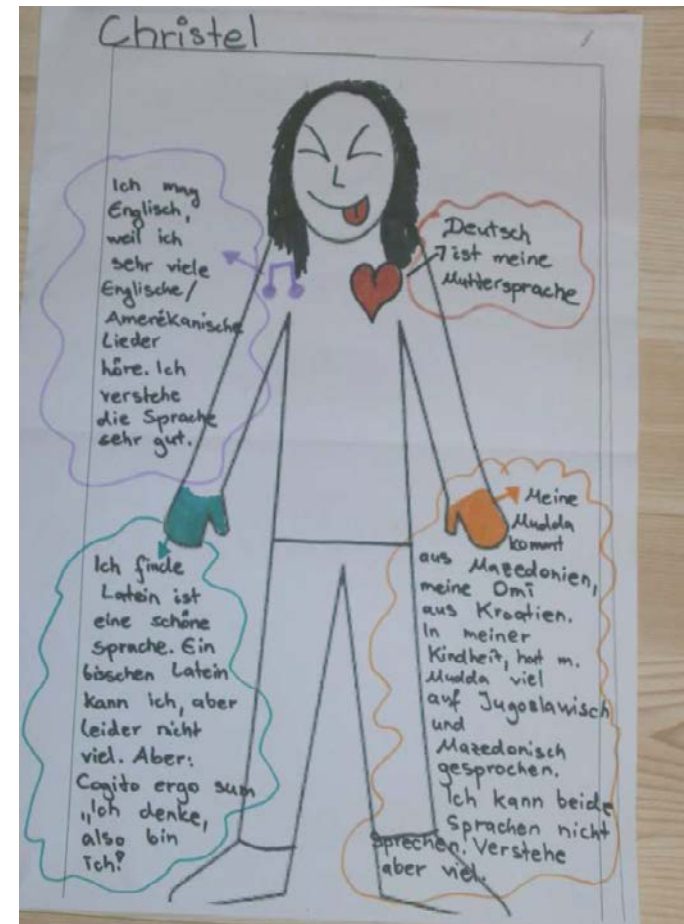 Christel
Ich mag
Englisch,
weil ich
sehr viele
Englische/
Amerékanische
Lieder
höre. Ich
verstehe
die Sprache
sehr gut.
Deutsch
ist meine
Muttersprache
Ich finde
Latein ist
eine schöne
sprache. Ein
bisschen Latein
kann ich, aber
leider nicht
viel. Aber:
Cogito ergo sum
„Ich denke,
also bin
ich!
Meine
Mudda
kommt
aus Mazedonien,
meine Omi
aus Kroatien.
In meiner
Kindheit, hat m.
Mudda viel
auf Jugoslawisch
und
Mazedonisch
gesprochen.
Ich kann beide
Sprachen nicht
sprechen. Verstehe
aber viel.